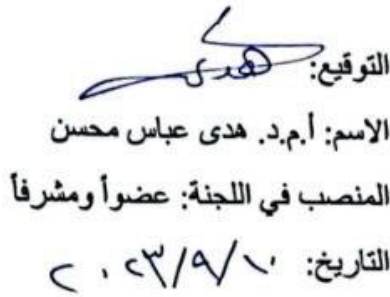 التوقيع: هدى
الاسم: أ.م.د. هدى عباس محسن
المنصب في اللجنة: عضواً ومشرفاً
التاريخ: ٢٠٢٣/٩/١٠